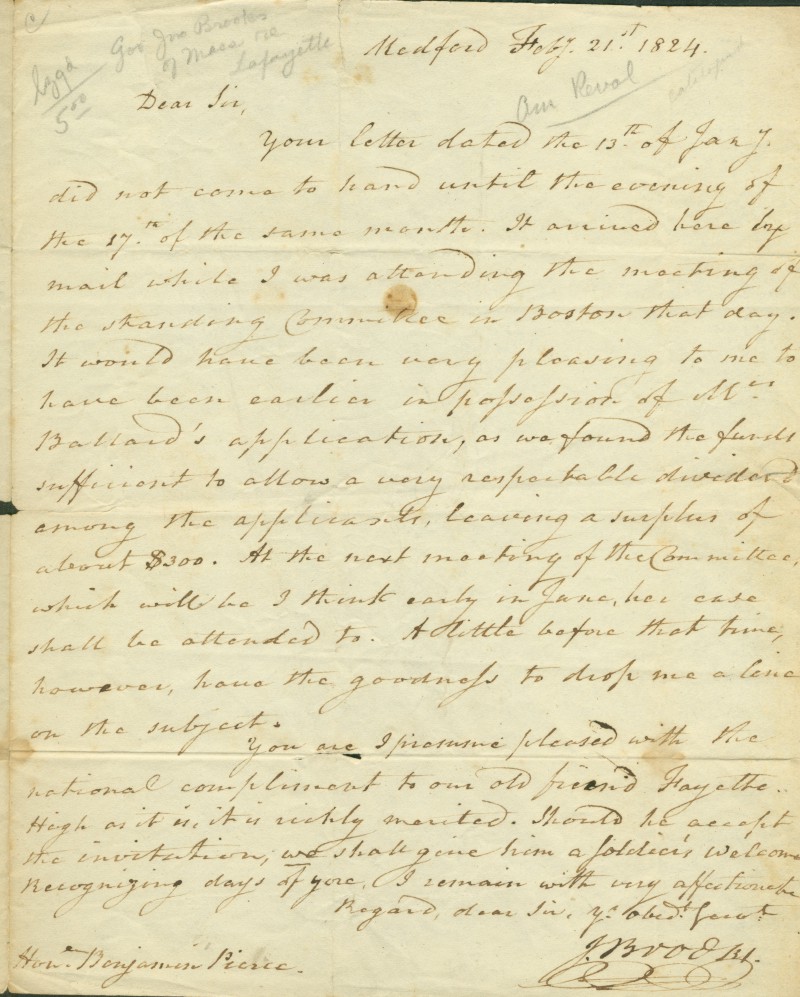 Gov Jno Brooks
of Mass re
Lafayette
5.00
Am Revol
Medford Feby. 21.st 1824.
Dear Sir,
Your letter dated the 13.th of Jany.
did not come to hand until the evening of
the 17.th of the same month. It arrived here by
mail while I was attending the meeting of
the standing Committee in Boston that day.
It would have been very pleasing to me to
have been earlier in possession of Mrs
Ballard's application, as we found the funds
sufficient to allow a very respectable dividend
among the applicants, leaving a surplus of
about $300. At the next meeting of the Committee,
which will be I think early in June, her case
shall be attended to. A little before that time,
however, have the goodness to drop me a line
on the subject.
You are I presume pleased with the
national compliment to our old friend Fayette.
High as it is, it is richly merited. Should he accept
the invitation, we shall give him a soldier's welcome
Recognizing days of yore. I remain with very affectionate
Regard, dear Sir, yr. obedt. Servt.
J. BROOKS.
Hone. Benjamin Pierce.